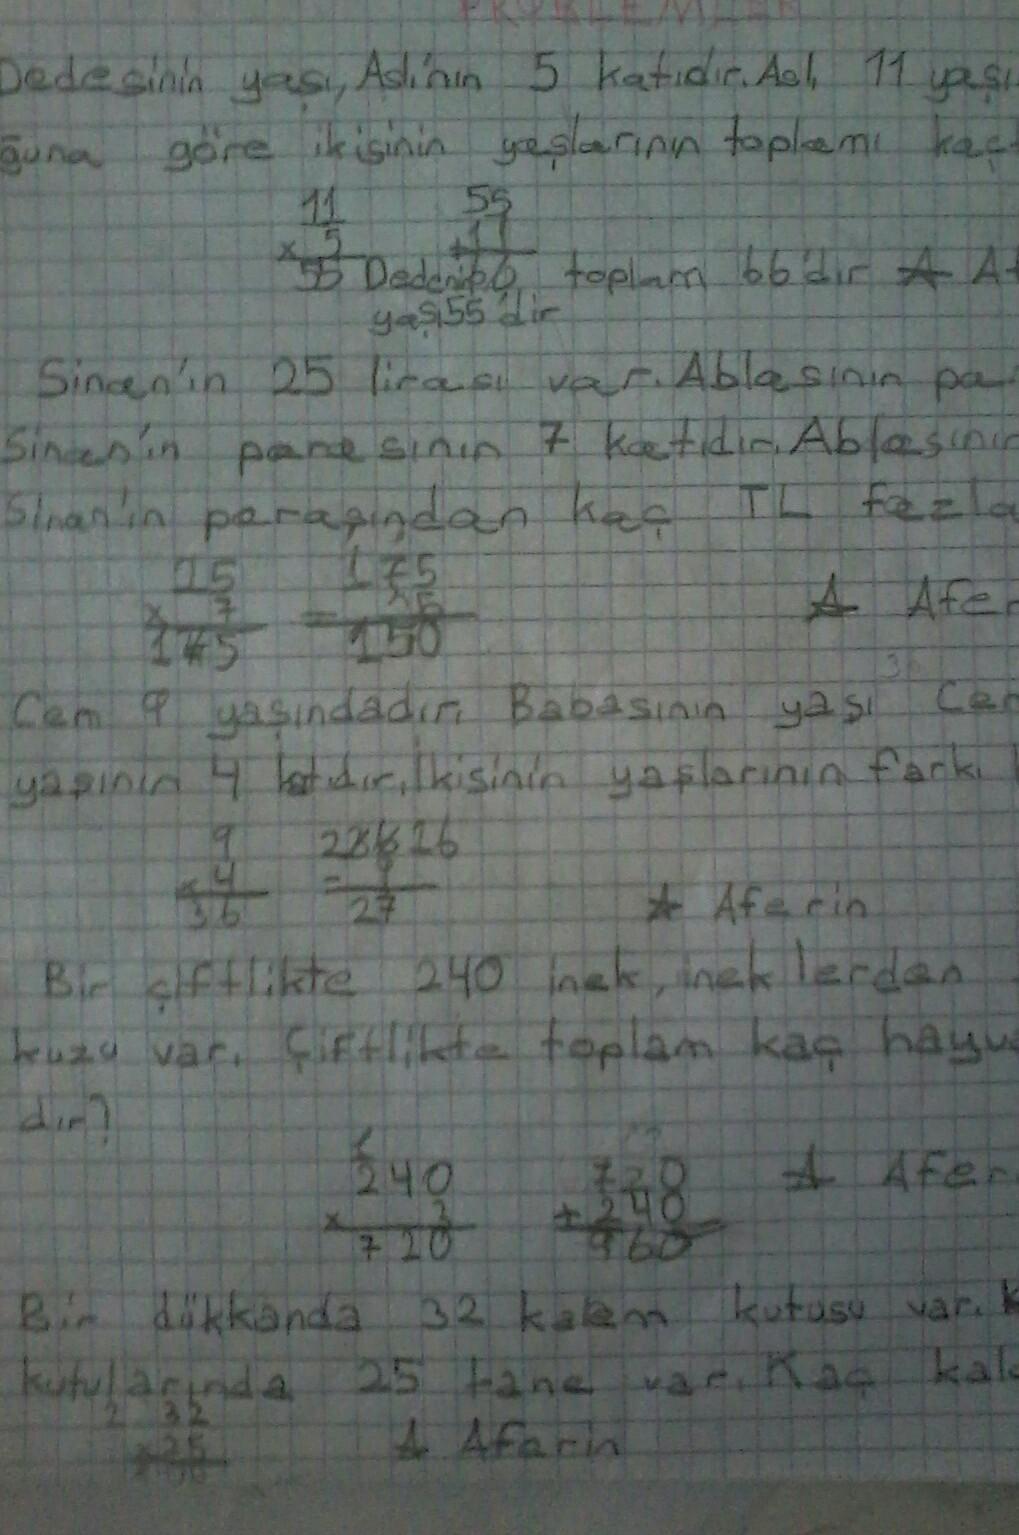 PROBLEMLER
Dedesinin yaşı, Aslı'nın 5 katıdır. Aslı 11 yaşı
ğuna göre ikisinin yaşlarının toplamı kaç
11 55
x 5 +11
55 Dedenin 66 toplam 66'dır A Af
yaşı 55'dir
Sinan'ın 25 lirası var. Ablasının pa
Sinan'ın parasının 7 katıdır. Ablasının
Sinan'ın parasından kaç TL fazla
25 175
x 7 - 25
175 150 A Afer
Cem 9 yaşındadır. Babasının yaşı Cem
yaşının 4 katıdır. İkisinin yaşlarının farkı
9 26
x 4 - 9
36 27 A Aferin
Bir çiftlikte 240 inek, ineklerden
kuzu var. Çiftlikte toplam kaç hayva
dır?
240 720 A Afer
x 3 + 240
720 960
Bir dükkanda 32 kalem kutusu var. K
kutularında 25 tane var. Kaç kale
2 32
x 25 A Aferin